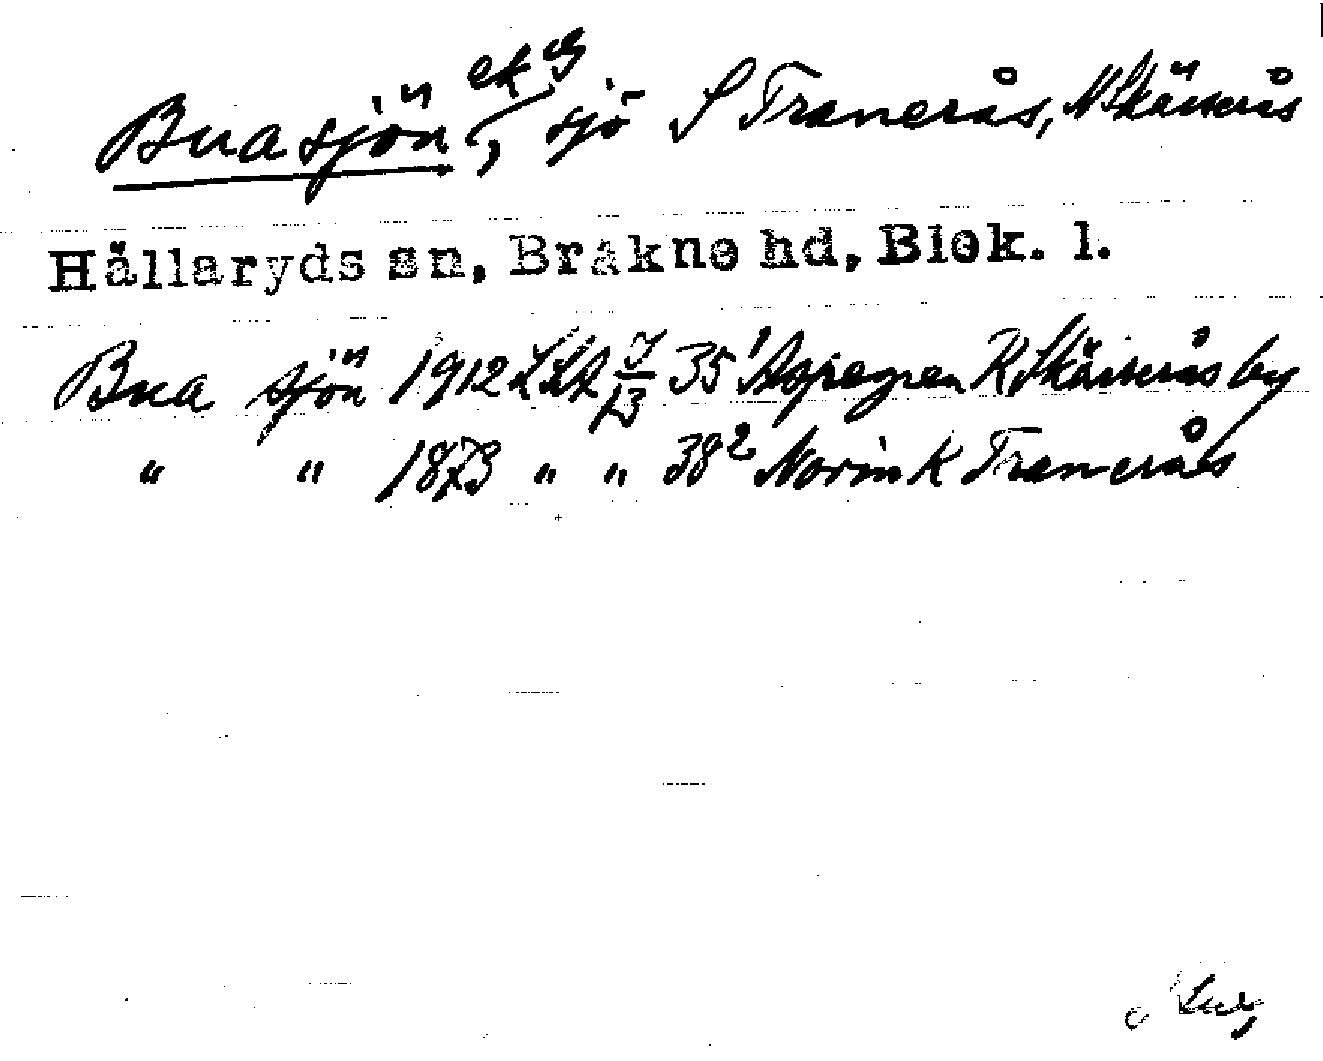 Buasjön, ek sjö S Tranerås, N Skäiserås
Hällaryds sn, Bräkne hd, Blek. l.
Bua sjön 1912 LSA 7/13 35¹ Aspegren K Skäiserås by
" " 1873 " " 38² Norin K Tranerås